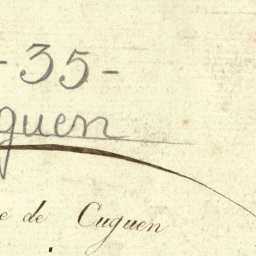 - 35 -
guen
e de Cuguen